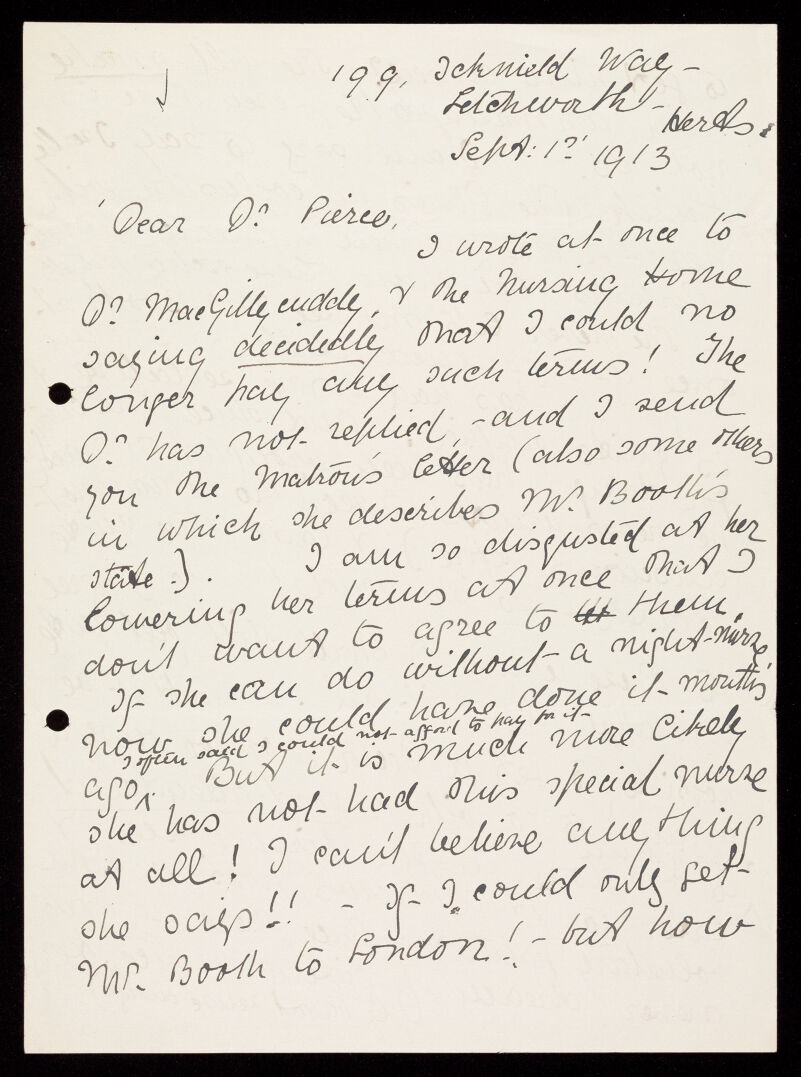 199, Icknield Way -
Letchworth - Herts.
Sept: 1st 1913
Dear Dr. Pierce,
I wrote at once to
Dr. MacGillycuddy, & the Nursing Home
saying decidedly that I could no
longer pay any such terms! The
Dr. has not replied, - and I send
you the Matron's letter (also some others
in which she describes Mr. Booth's
state.). I am so disgusted at her
lowering her terms at once that I
don't want to agree to them.
If she can do without a night-nurse
now she could have done it months
I often said I could not afford to pay for it
ago. But it is much more likely
she has not had this special nurse
at all! I can't believe anything
she says!! - If I could only get
Mr. Booth to London! - but how